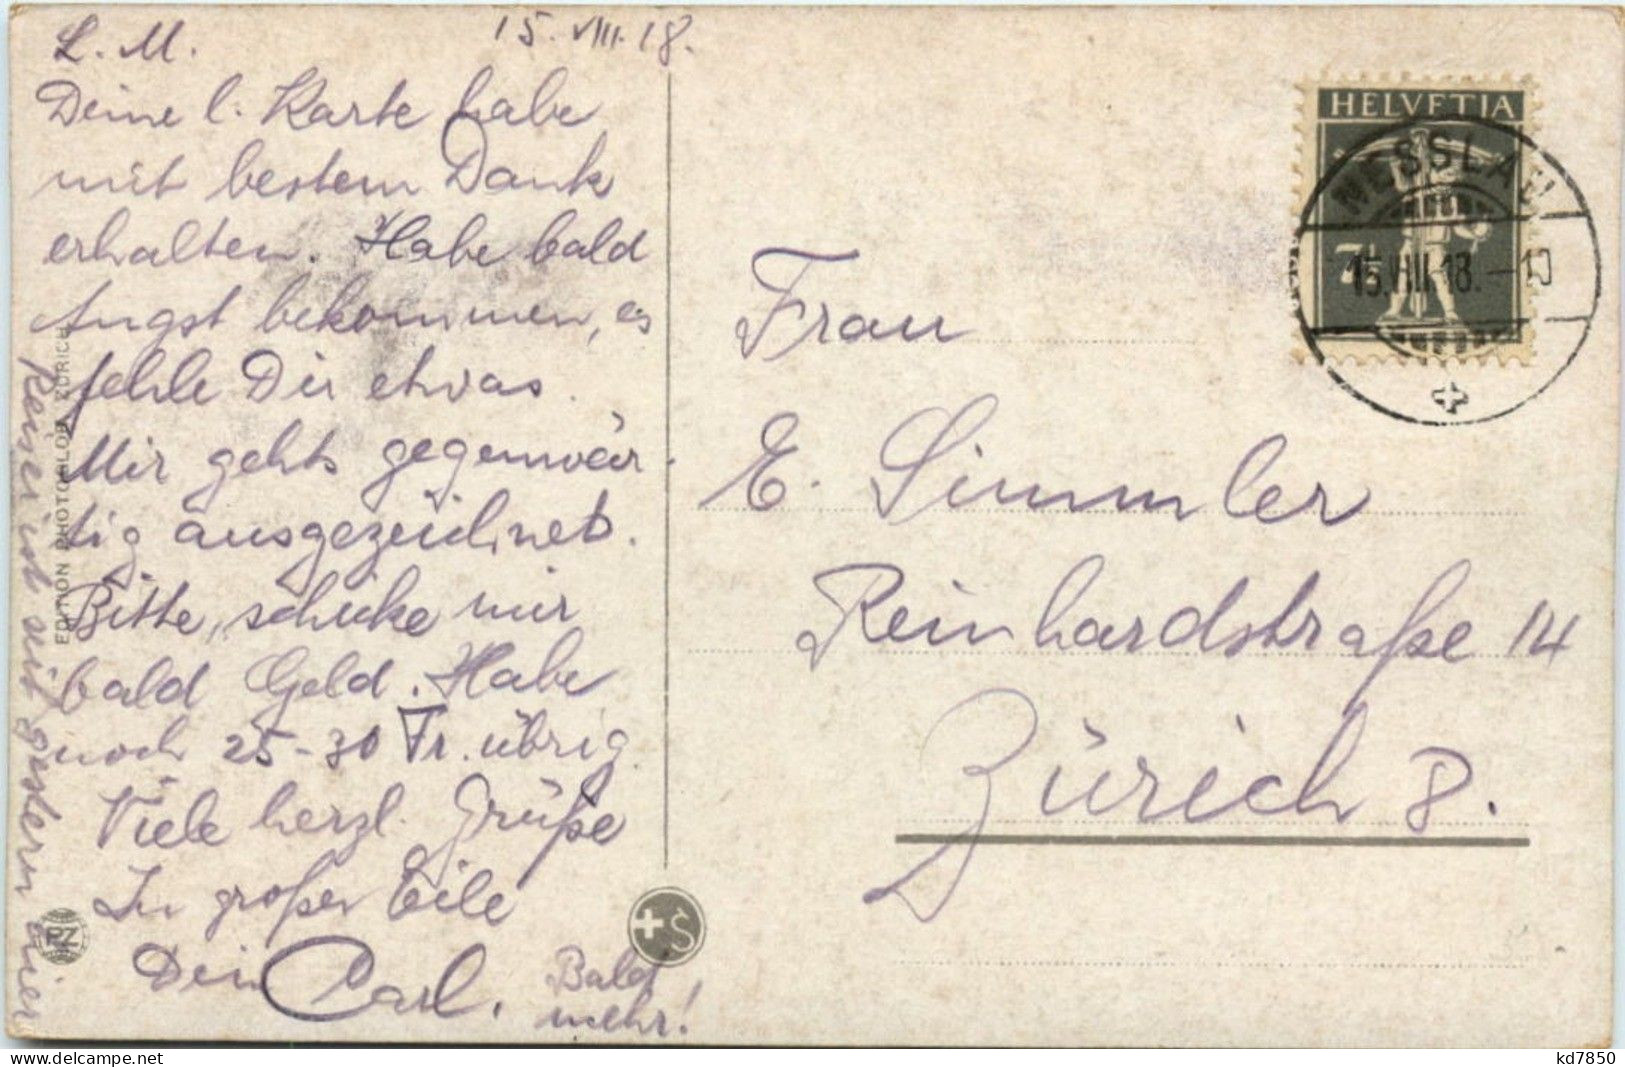 15. VIII. 18.
L. M.
Deine l. Karte habe
mit bestem Dank
erhalten. Habe bald
Angst bekommen, es
fehle Dir etwas.
Mir gehts gegenwär-
tig ausgezeichnet.
Bitte, schicke mir
bald Geld. Habe
noch 25-30 Fr. übrig.
Viele herzl. Grüße
In großer Eile
Dein Carl.
Bald
mehr!
ist seit gestern hier
EDITION PHOTOGLOB ZÜRICH
PZ
+S
HELVETIA
7½
NESSLAU
15.VIII.18.
Frau
E. Simmler
Reinhardstraße 14
Zürich 8.
delcampe.net
kd7850